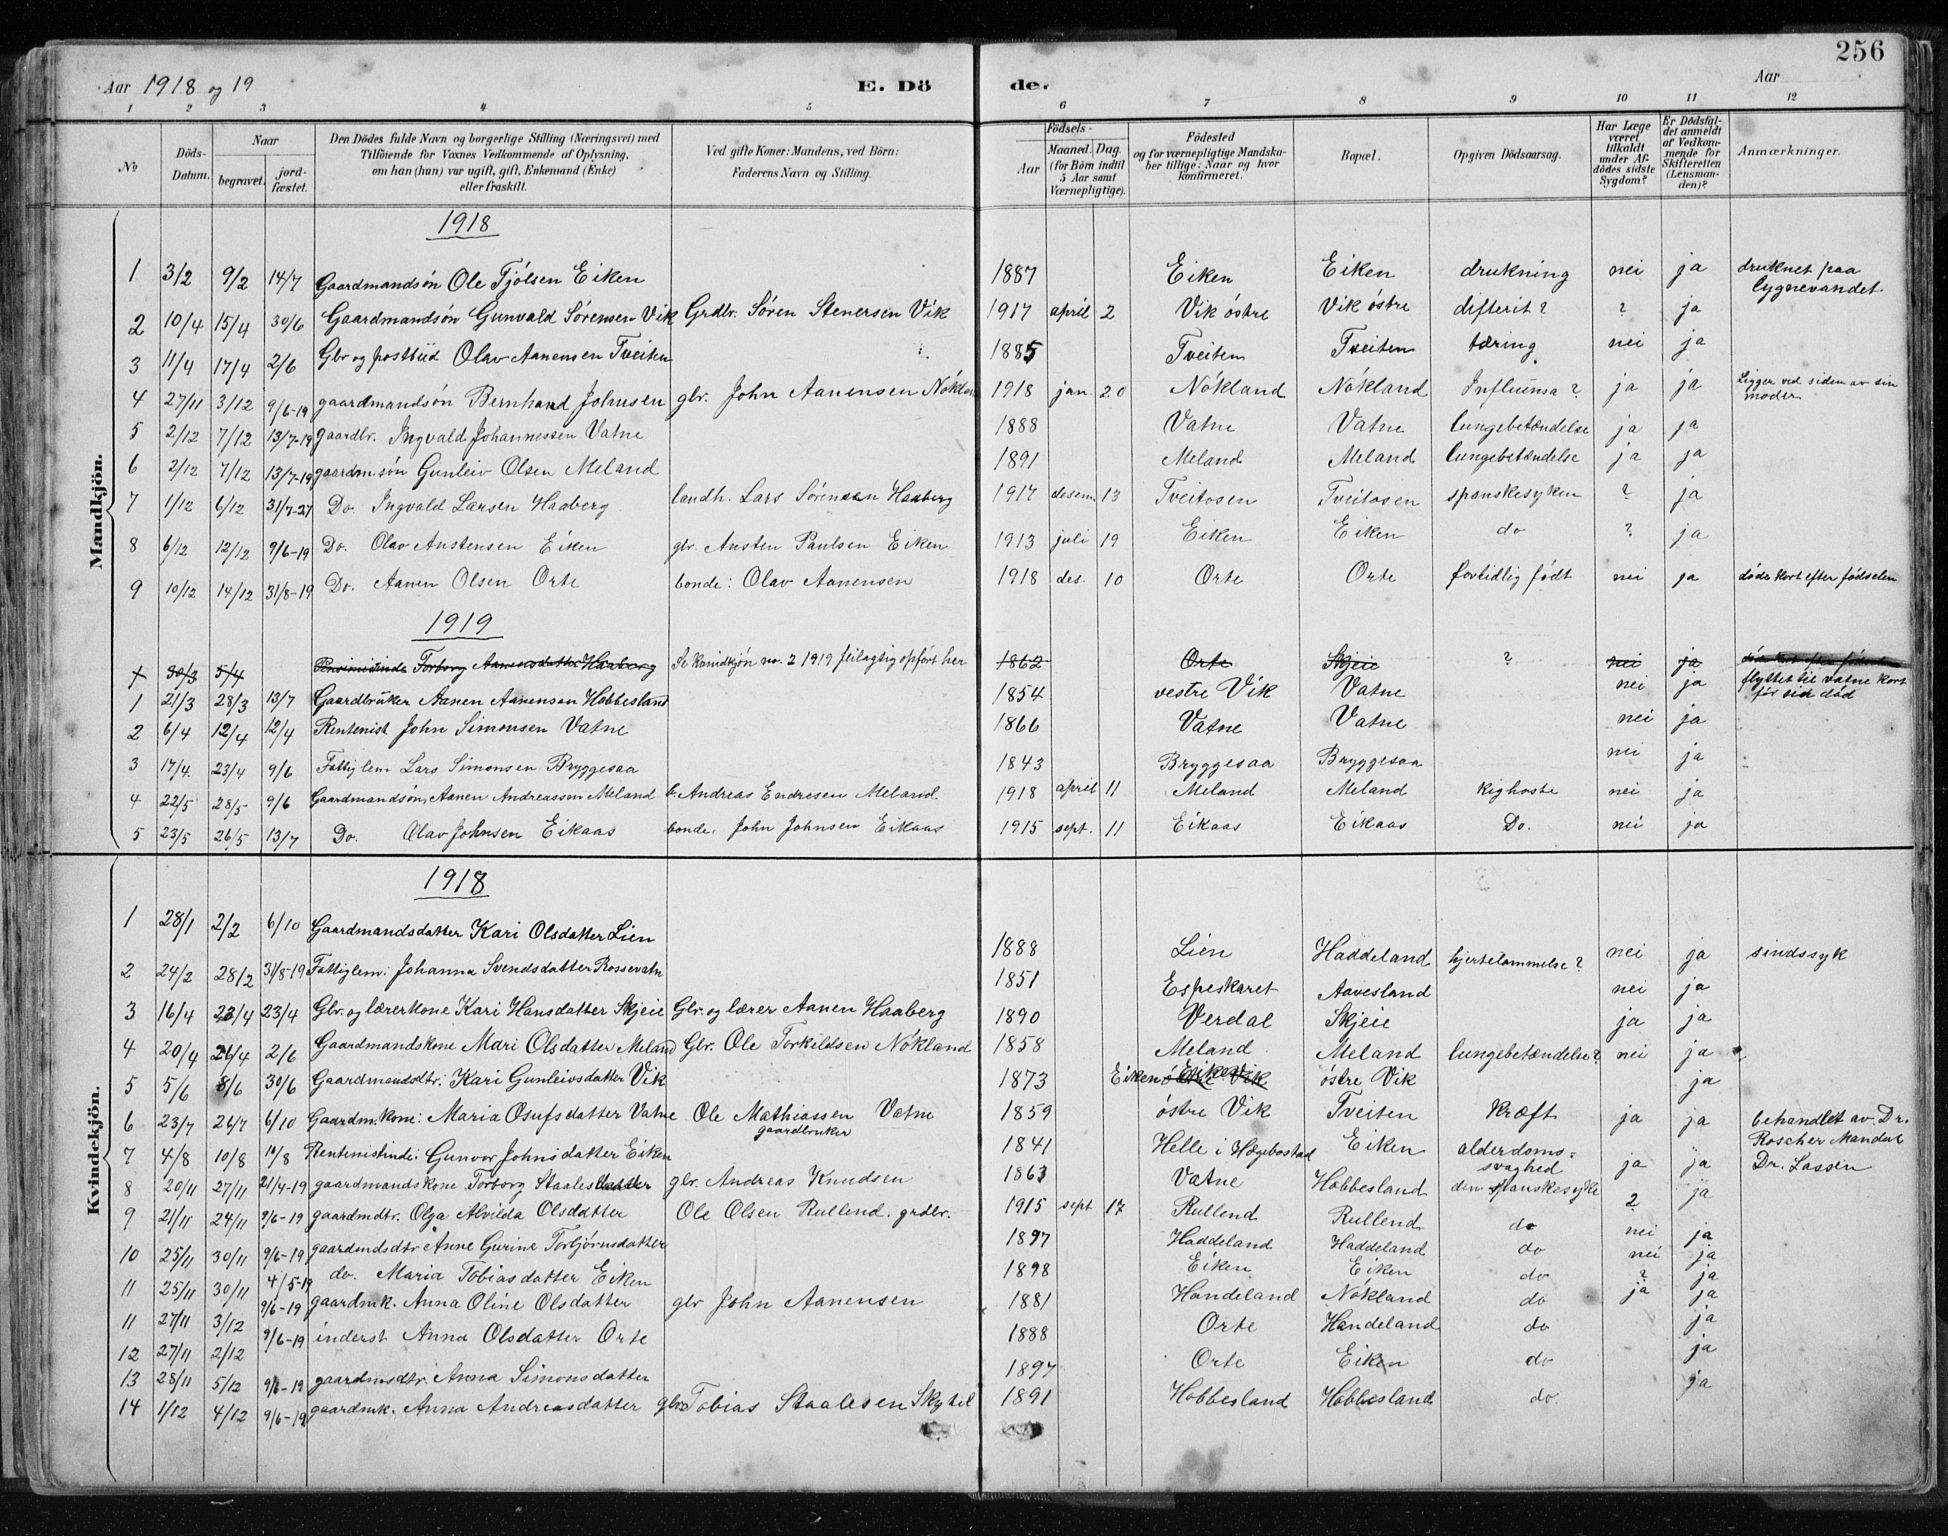 256
Aar 1918 og 19 E. Dö de. Aar
1 2 3 4 5 6 7 8 9 10 11 12
No
Döds-Datum.
Naar
begravet.
jord-fæstet.
Den Dödes fulde Navn og borgerlige Stilling (Næringsvei) med
Tilföiende for Voxnes Vedkommende af Oplysning,
om han (hun) var ugift, gift, Enkemand (Enke)
eller fraskilt.
Ved gifte Koner: Mandens, ved Börn:
Faderens Navn og Stilling.
Födsels-
Aar
Maaned. Dag.
(for Börn indtil
5 Aar samt
Værnepligtige).
Födested
og for værnepligtige Mandska-
ber tillige: Naar og hvor
konfirmeret.
Bopæl.
Opgiven Dödsaarsag.
Har Læge
været
tilkaldt
under Af-
dödes sidste
Sygdom?
Er Dödsfal-
det anmeldt
af Vedkom-
mende for
Skifteretten
(Lensman-
den)?
Anmærkninger.
Mandkjön.
1918
1 3/2 9/2 14/7 Gaardmandsön Ole Tjólsen Eiken 1887 Eiken Eiken drukning nei ja druknet paa Lygnevandet
2 10/4 15/4 30/6 Gaardmandsön Gunvald Sörensen Vik Grdbr. Sören Stenersen Vik 1917 april 2 Vik östre Vik östre difterit? ? ja
3 11/4 17/4 2/6 Gbr og postbud Olav Aanensen Tveiten 1885 Tveiten Tveiten tæring nei ja
4 27/11 3/12 9/6-19 gaardmandsön Bernhard Johnsen gbr. John Aanensen Nökland 1918 jan. 20 Nökland Nökland Influinsa? ja ja Ligger ved siden av sin moder
5 2/12 7/12 13/7-19 gaardbr. Ingvald Johannessen Vatne 1888 Vatne Vatne lungebetændelse ja ja
6 2/12 7/12 13/7-19 gaardm.sön Gunleiv Olsen Meland 1891 Meland Meland lungebetændelse ja ja
7 1/12 6/12 31/7-27 Do. Ingvald Larsen Haaberg landh. Lars Sörensen Haaberg 1917 desem. 13 Tveitosen Tveitosen spanskesyken ? ja
8 6/12 12/12 9/6-19 Do. Olav Austensen Eiken gbr. Austen Paulsen Eiken 1913 juli 19 Eiken Eiken do ? ja
9 10/12 14/12 31/8-19 Do. Aanen Olsen Orte bonde: Olav Aanensen 1918 des. 10 Orte Orte fortidlig födt nei ja döde kort efter födselen
1919
+ 30/3 5/4 Torborg Aanensdatter Haaberg Se kvindkjön no. 2 1919 feilagtig opfört her 1862 Orte Skjeie ? nei ja döde kort efter födselen
1 21/3 28/3 13/7 Gaardbruker Aanen Aanensen Hobbesland 1854 vestre Vik Vatne nei ja flyttet til Vatne kort för sin död
2 6/4 12/4 12/4 Rentenist John Simonsen Vatne 1866 Vatne Vatne nei ja
3 17/4 23/4 9/6 Fattiglem Lars Simonsen Bryggesaa 1843 Bryggesaa Bryggesaa nei ja
4 22/5 28/5 9/6 Gaardmandsön, Aanen Andreassen Meland b. Andreas Endresen Meland 1918 april 11 Meland Meland kighoste nei ja
5 23/5 26/5 13/7 Do. Olav Johnsen Eikaas bonde. John Johnsen Eikaas 1915 sept. 11 Eikaas Eikaas Do. nei ja
Kvindekjön.
1918
1 28/1 2/2 6/10 Gaardmandsdatter Kari Olsdatter Lien 1888 Lien Haddeland hjertelammelse? nei ja sindssyk
2 24/2 28/2 31/8-19 Fattiglem: Johanna Svendsdatter Rossevatn 1851 Espeskaret Aavesland nei ja
3 16/4 23/4 23/4 Gbr. og lærerkone Kari Hansdatter Skjeie Gbr. og lærer Aanen Haaberg 1890 Verdal Skjeie ja ja
4 20/4 26/4 2/6 Gaardmandskone Mari Olsdatter Meland Gbr. Ole Torkildsen Nökland 1858 Meland Meland lungebetændelse? nei ja
5 5/6 8/6 30/6 Gaardmandsdtr. Kari Gunleivsdatter Vik 1873 Eiken östre Vik östre Vik ja
6 23/7 26/7 6/10 Gaardm.kone: Maria Osufsdatter Vatne Ole Mathiassen Vatne gaardbruker 1859 östre Vik Tveiten Kræft ja ja behandlet av Dr. Roscher Mandal
7 4/8 10/8 10/8 Rentenistinde: Gunvor Johnsdatter Eiken 1841 Helle i Hægebostad Eiken alderdoms-svaghed ja ja Dr. Lassen
8 20/11 27/11 21/4-19 gaardmandskone Torborg Staalesdatter gbr. Andreas Knudsen 1863 Vatne Hobbesland den spanskesyke ? ja
9 21/11 24/11 9/6-19 gaardmdtr. Olga Alvilda Olsdatter Ole Olsen Rullend. grdbr. 1915 sept 17 Rullend Rullend do nei ja
10 25/11 30/11 9/6-19 gaardmdsdtr Anne Gurine Torbjörnsdatter 1897 Haddeland Haddeland do nei ja
11 25/11 30/11 4/5-19 do. Maria Tobiasdatter Eiken 1898 Eiken Eiken do ? ja
11 27/11 3/12 9/6-19 gaardmk. Anna Oline Olsdatter gbr John Aanensen 1881 Handeland Nökland do ja ja
12 27/11 2/12 9/6-19 inderst Anna Olsdatter Orte 1888 Orte Handeland do ja
13 28/11 5/12 9/6-19 gaardmsdtr. Anna Simonsdatter 1897 Orte Eiken do ja
14 1/12 4/12 9/6-19 gaardmk. Anna Andreasdatter gbr. Tobias Staalesen Skytel 1891 Hobbesland Hobbesland do. ja